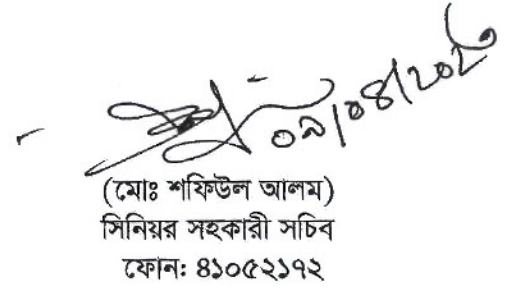 ০৯/০৪/২০২৩
(মোঃ শফিউল আলম)
সিনিয়র সহকারী সচিব
ফোন: ৪১০৫২১৭২